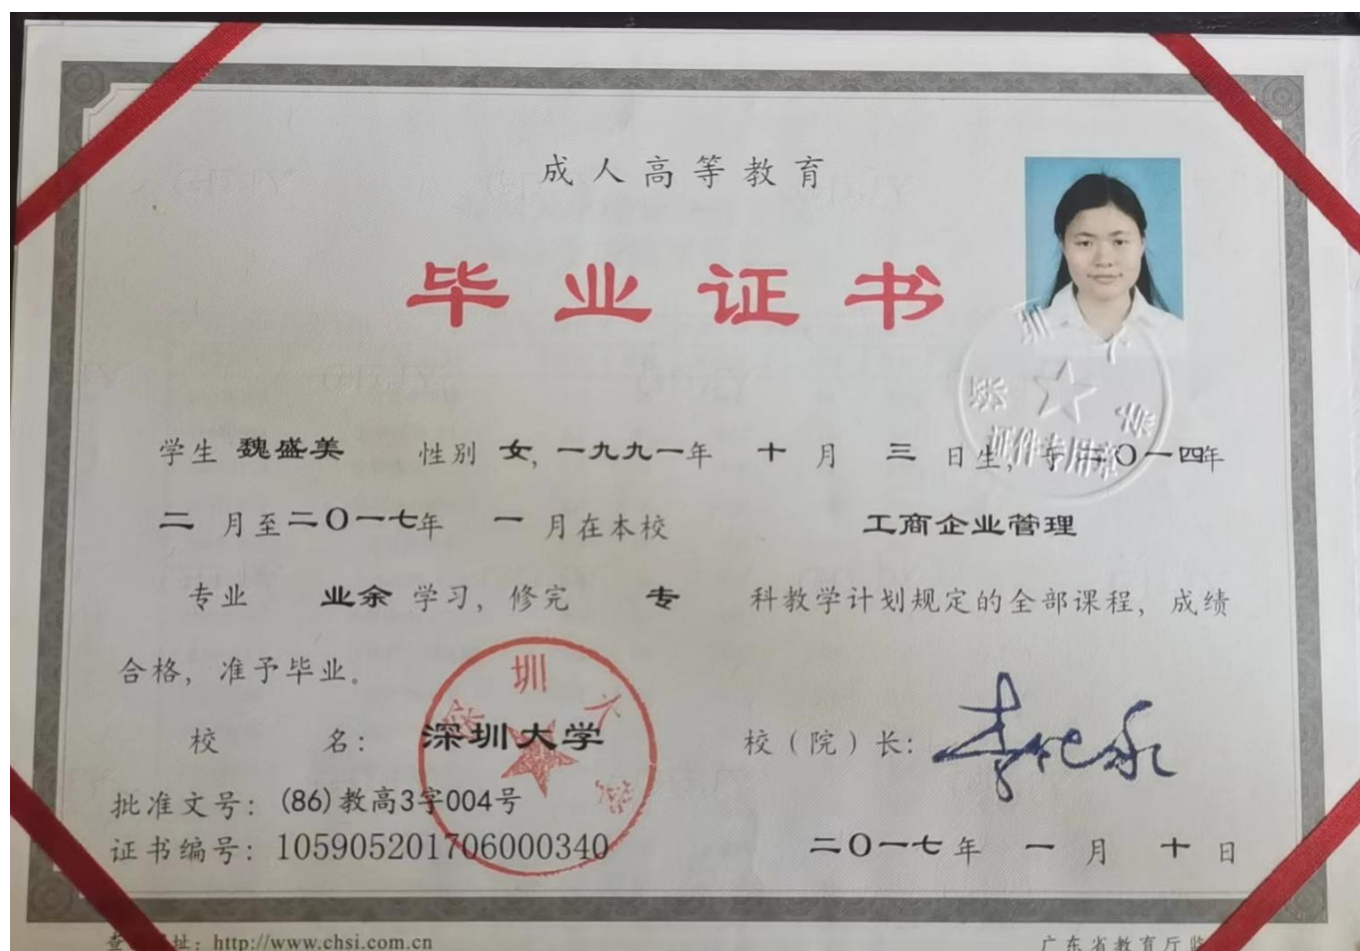 成人高等教育
毕业证书
学生 魏盛美 性别 女, 一九九一年 十 月 三 日生, 于二〇一四年
二 月至二〇一七年 一 月在本校 工商企业管理
专业 业余 学习, 修完 专 科教学计划规定的全部课程, 成绩
合格, 准予毕业。
校 名: 深圳大学 校(院)长:
批准文号: (86)教高3字004号
证书编号: 105905201706000340
二〇一七年 一 月 十 日
深圳大学
证件专用章
http://www.chsi.com.cn
广东省教育厅监